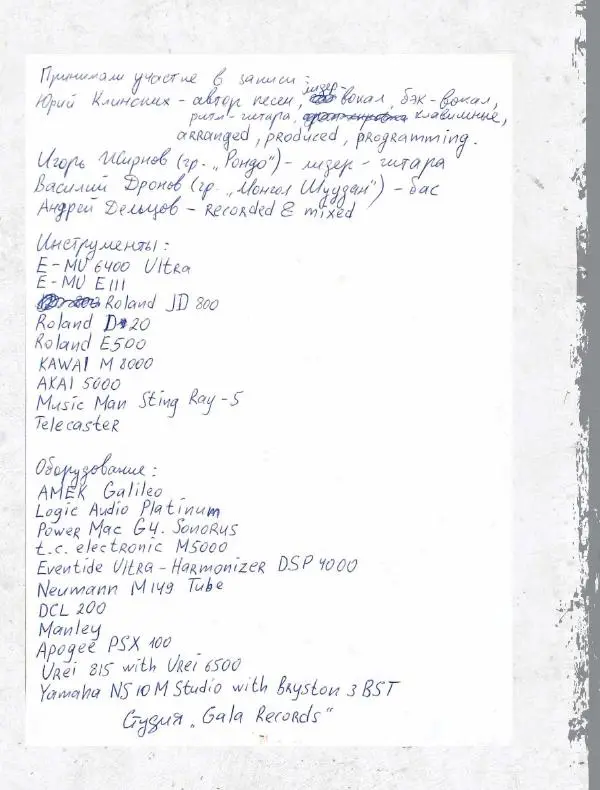 Принимали участие в записи:
Юрий Клинских – автор песен, лидер-вокал, бэк-вокал,
ритм-гитара, клавишные,
arranged, produced, programming.
Игорь Жирнов (гр. „Рондо") – лидер-гитара
Василий Дронов (гр. „Монгол Шуудан") – бас
Андрей Дельцов – Recorded & mixed
Инструменты:
E-MU 6400 Ultra
E-MU E III
Roland JD 800
Roland D-20
Roland E500
KAWAI M 8000
AKAI 5000
Music Man Sting Ray-5
Telecaster
Оборудование:
AMEK Galileo
Logic Audio Platinum
Power Mac G4. Sonorus
t.c. electronic M5000
Eventide Ultra-Harmonizer DSP 4000
Neumann M149 Tube
DCL 200
Manley
Apogee PSX 100
Urei 815 with Urei 6500
Yamaha NS 10 M Studio with Bryston 3 BST
Студия „Gala Records"